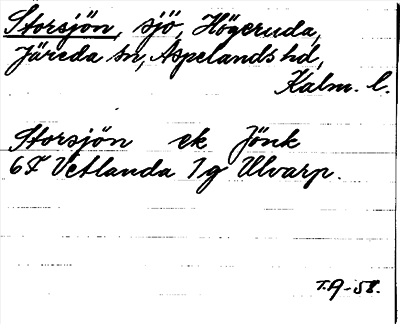 Storsjön, sjö, Högeruda,
Järeda sn, Aspelands hd,
Kalm. l.
Storsjön ek Jönk
6F Vetlanda 7g Ulvarp.
T.A-58.